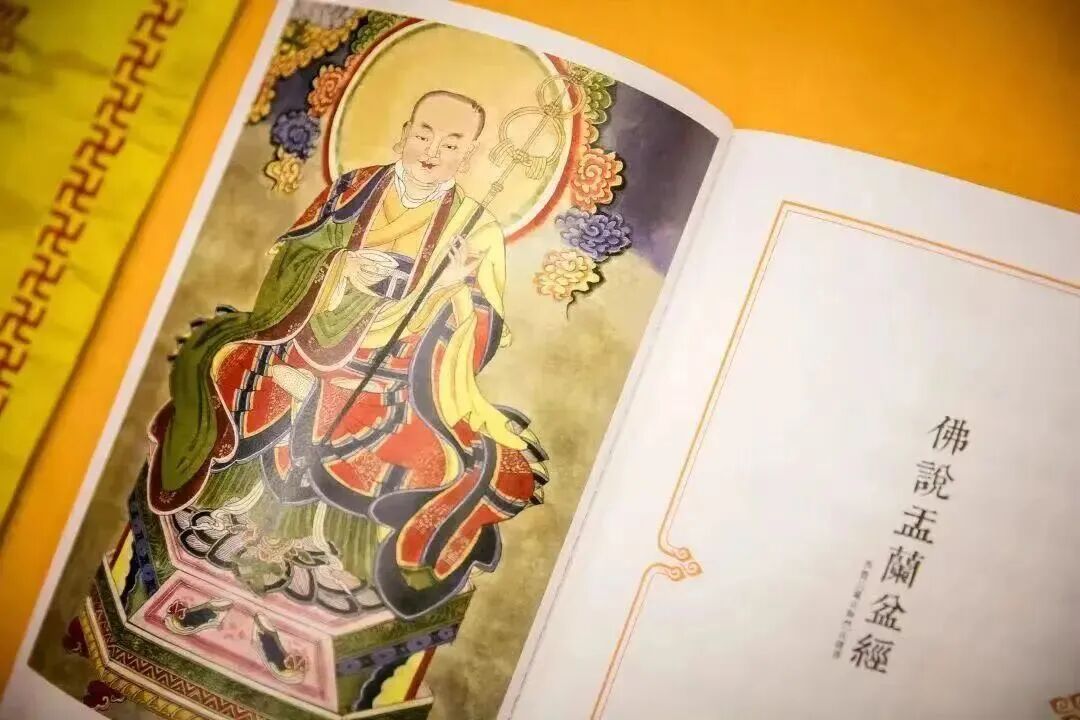 佛說盂蘭盆經